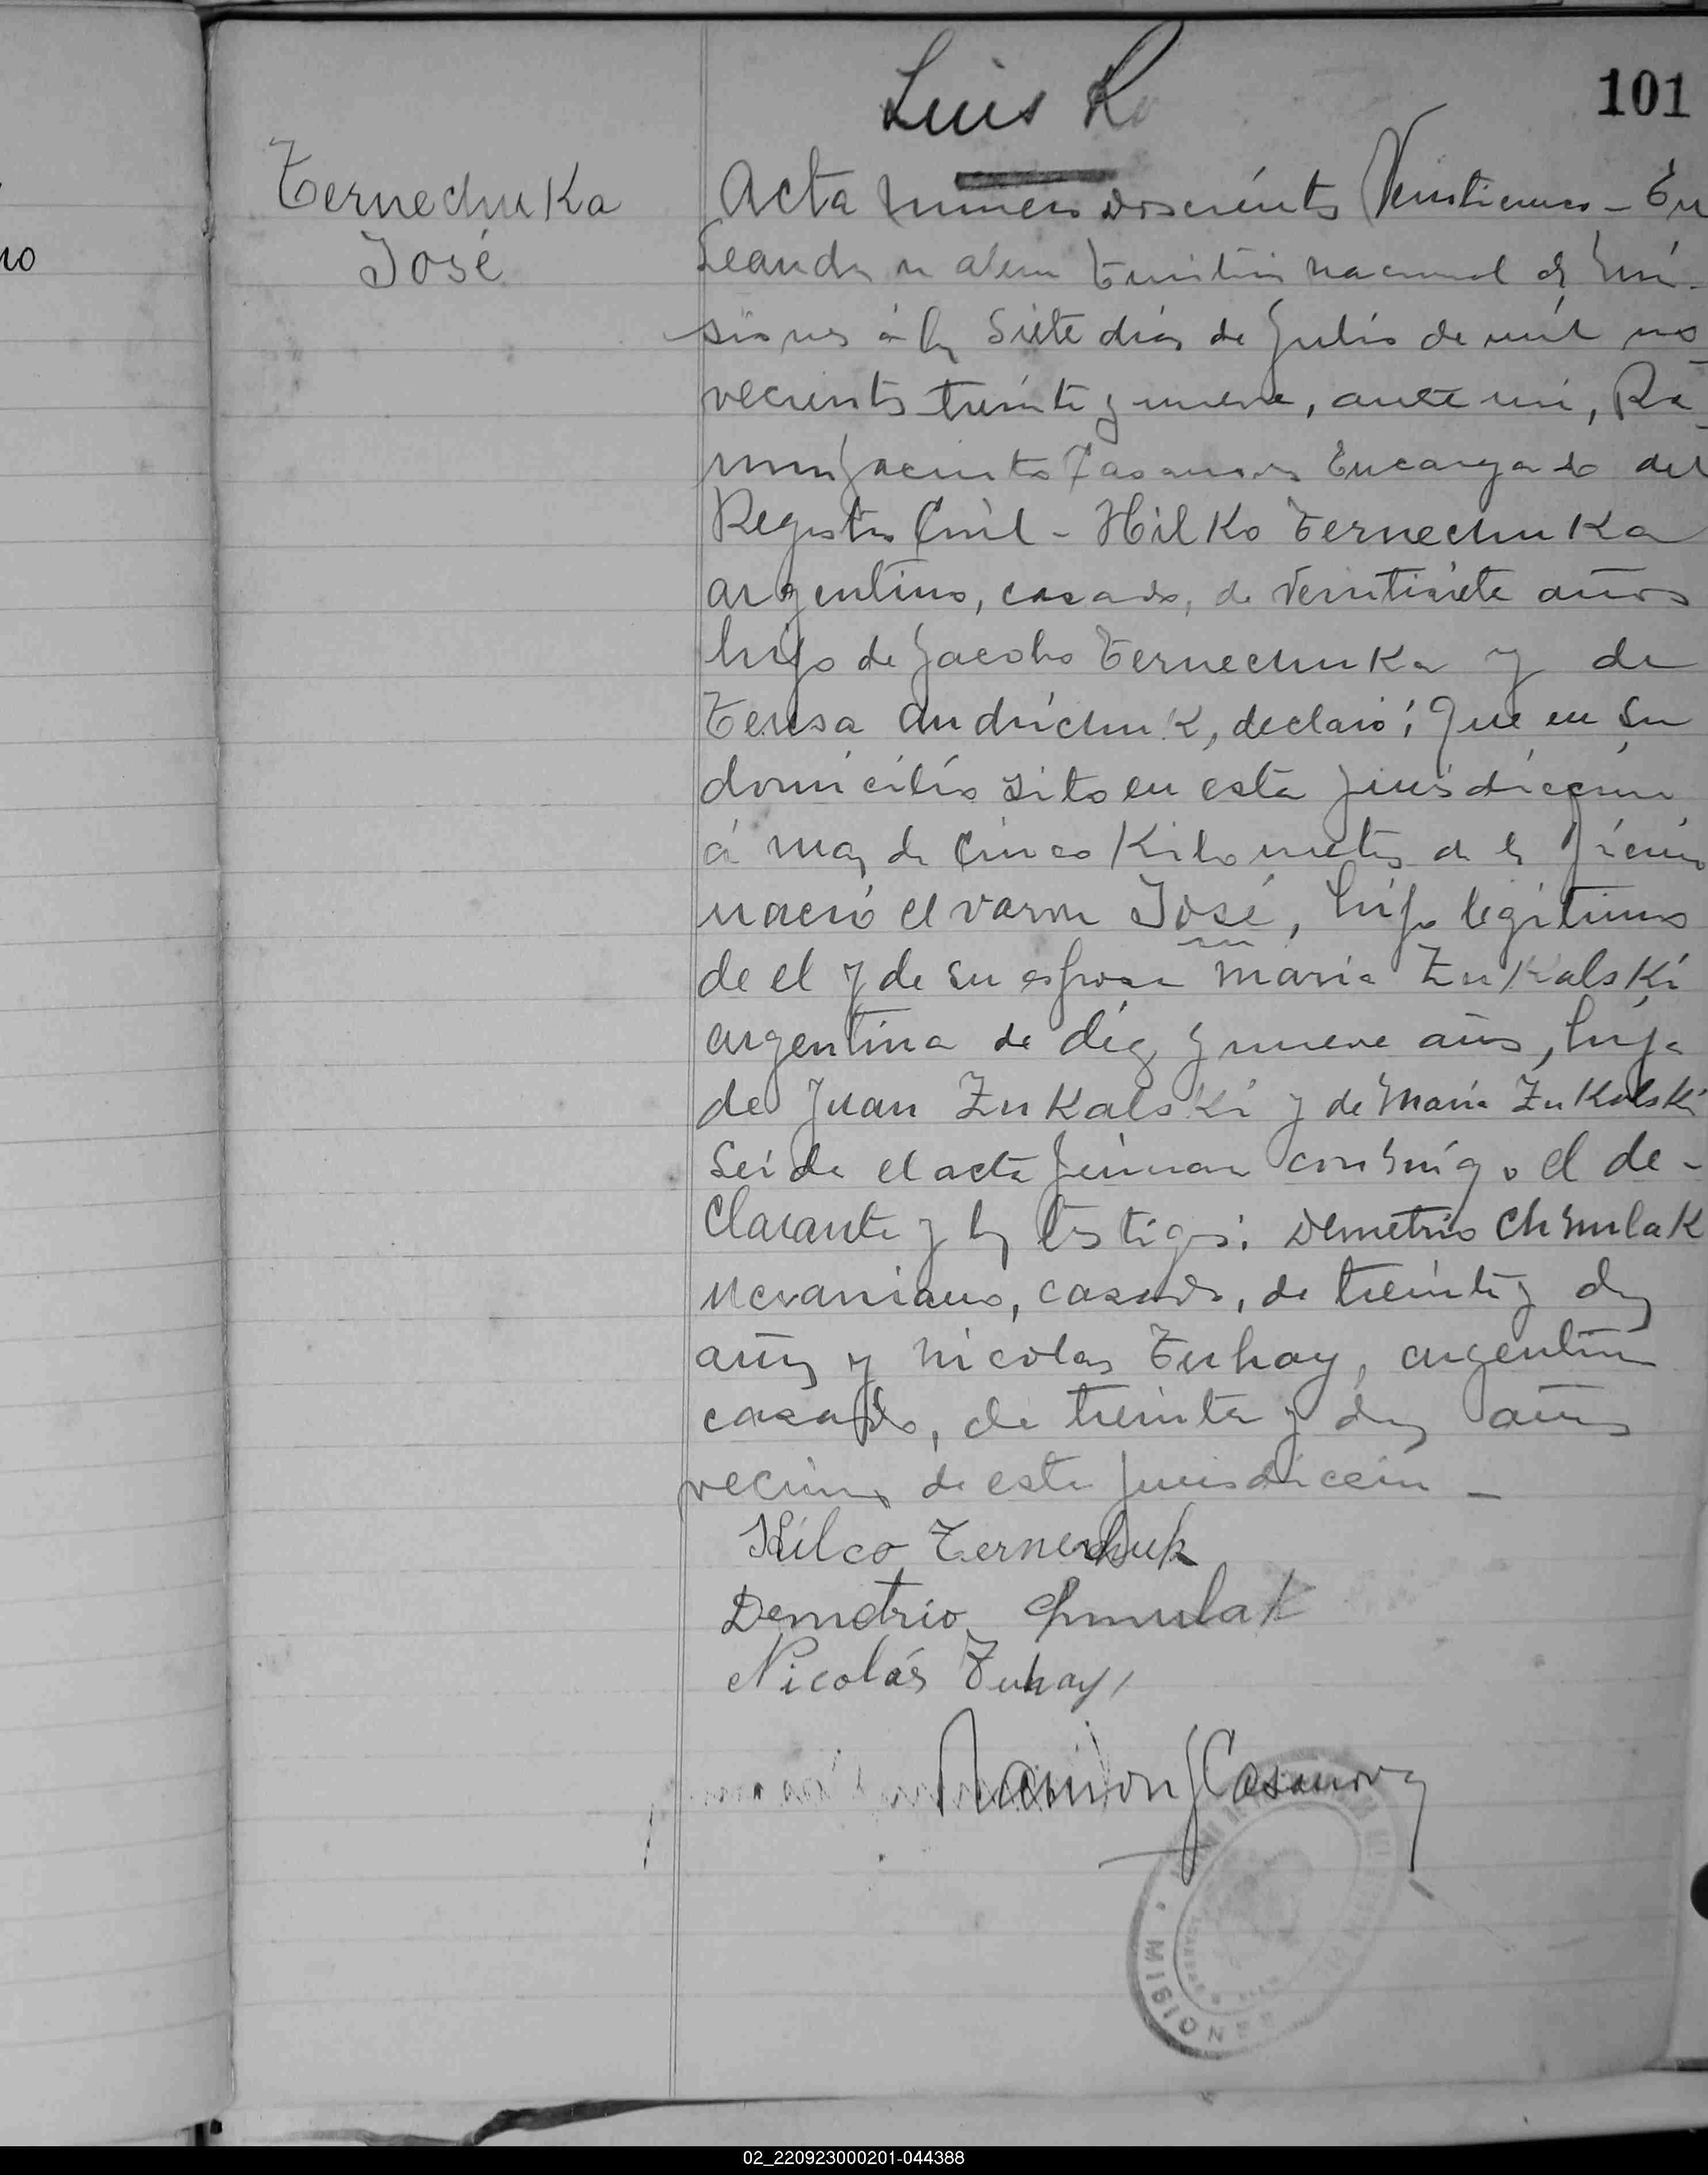 Luis R
101
Ternechuka
José
no
Acta número doscientos Veinticinco - En
Leandro n alem Territorio nacional de Mi-
siones á los Siete dias de Julio de mil no-
vecientos treinta y nueve, ante mi, Ra-
mon Jacinto Casanova Encargado del
Registro Civil - Hilko Ternechuka
argentino, casado, de Veintisiete años
hijo de Jacobo Ternechuka y de
Teresa Andrichuk, declaró: Que en su
domicilio sito en esta jurisdiccion
á mas de Cinco Kilometros de la
nació el varon José, hijo legitimo
de el y de su esposa Maria Zukalski
argentina de diez y nueve años, hija
de Juan Zukalski y de Maria Zukalski
Leida el acta firman conmigo el de-
clarante y los testigos: Demetrio Chmulak
Ucraniano, casado, de treinta y dos
años y Nicolas Tuhay, argentino
casado, de treinta y dos años
vecinos de esta jurisdiccion -
Hilco Ternechuk
Demetrio Chmulak
Nicolás Tuhay
Ramon J Casanova
MISIONES
02_220923000201-044388